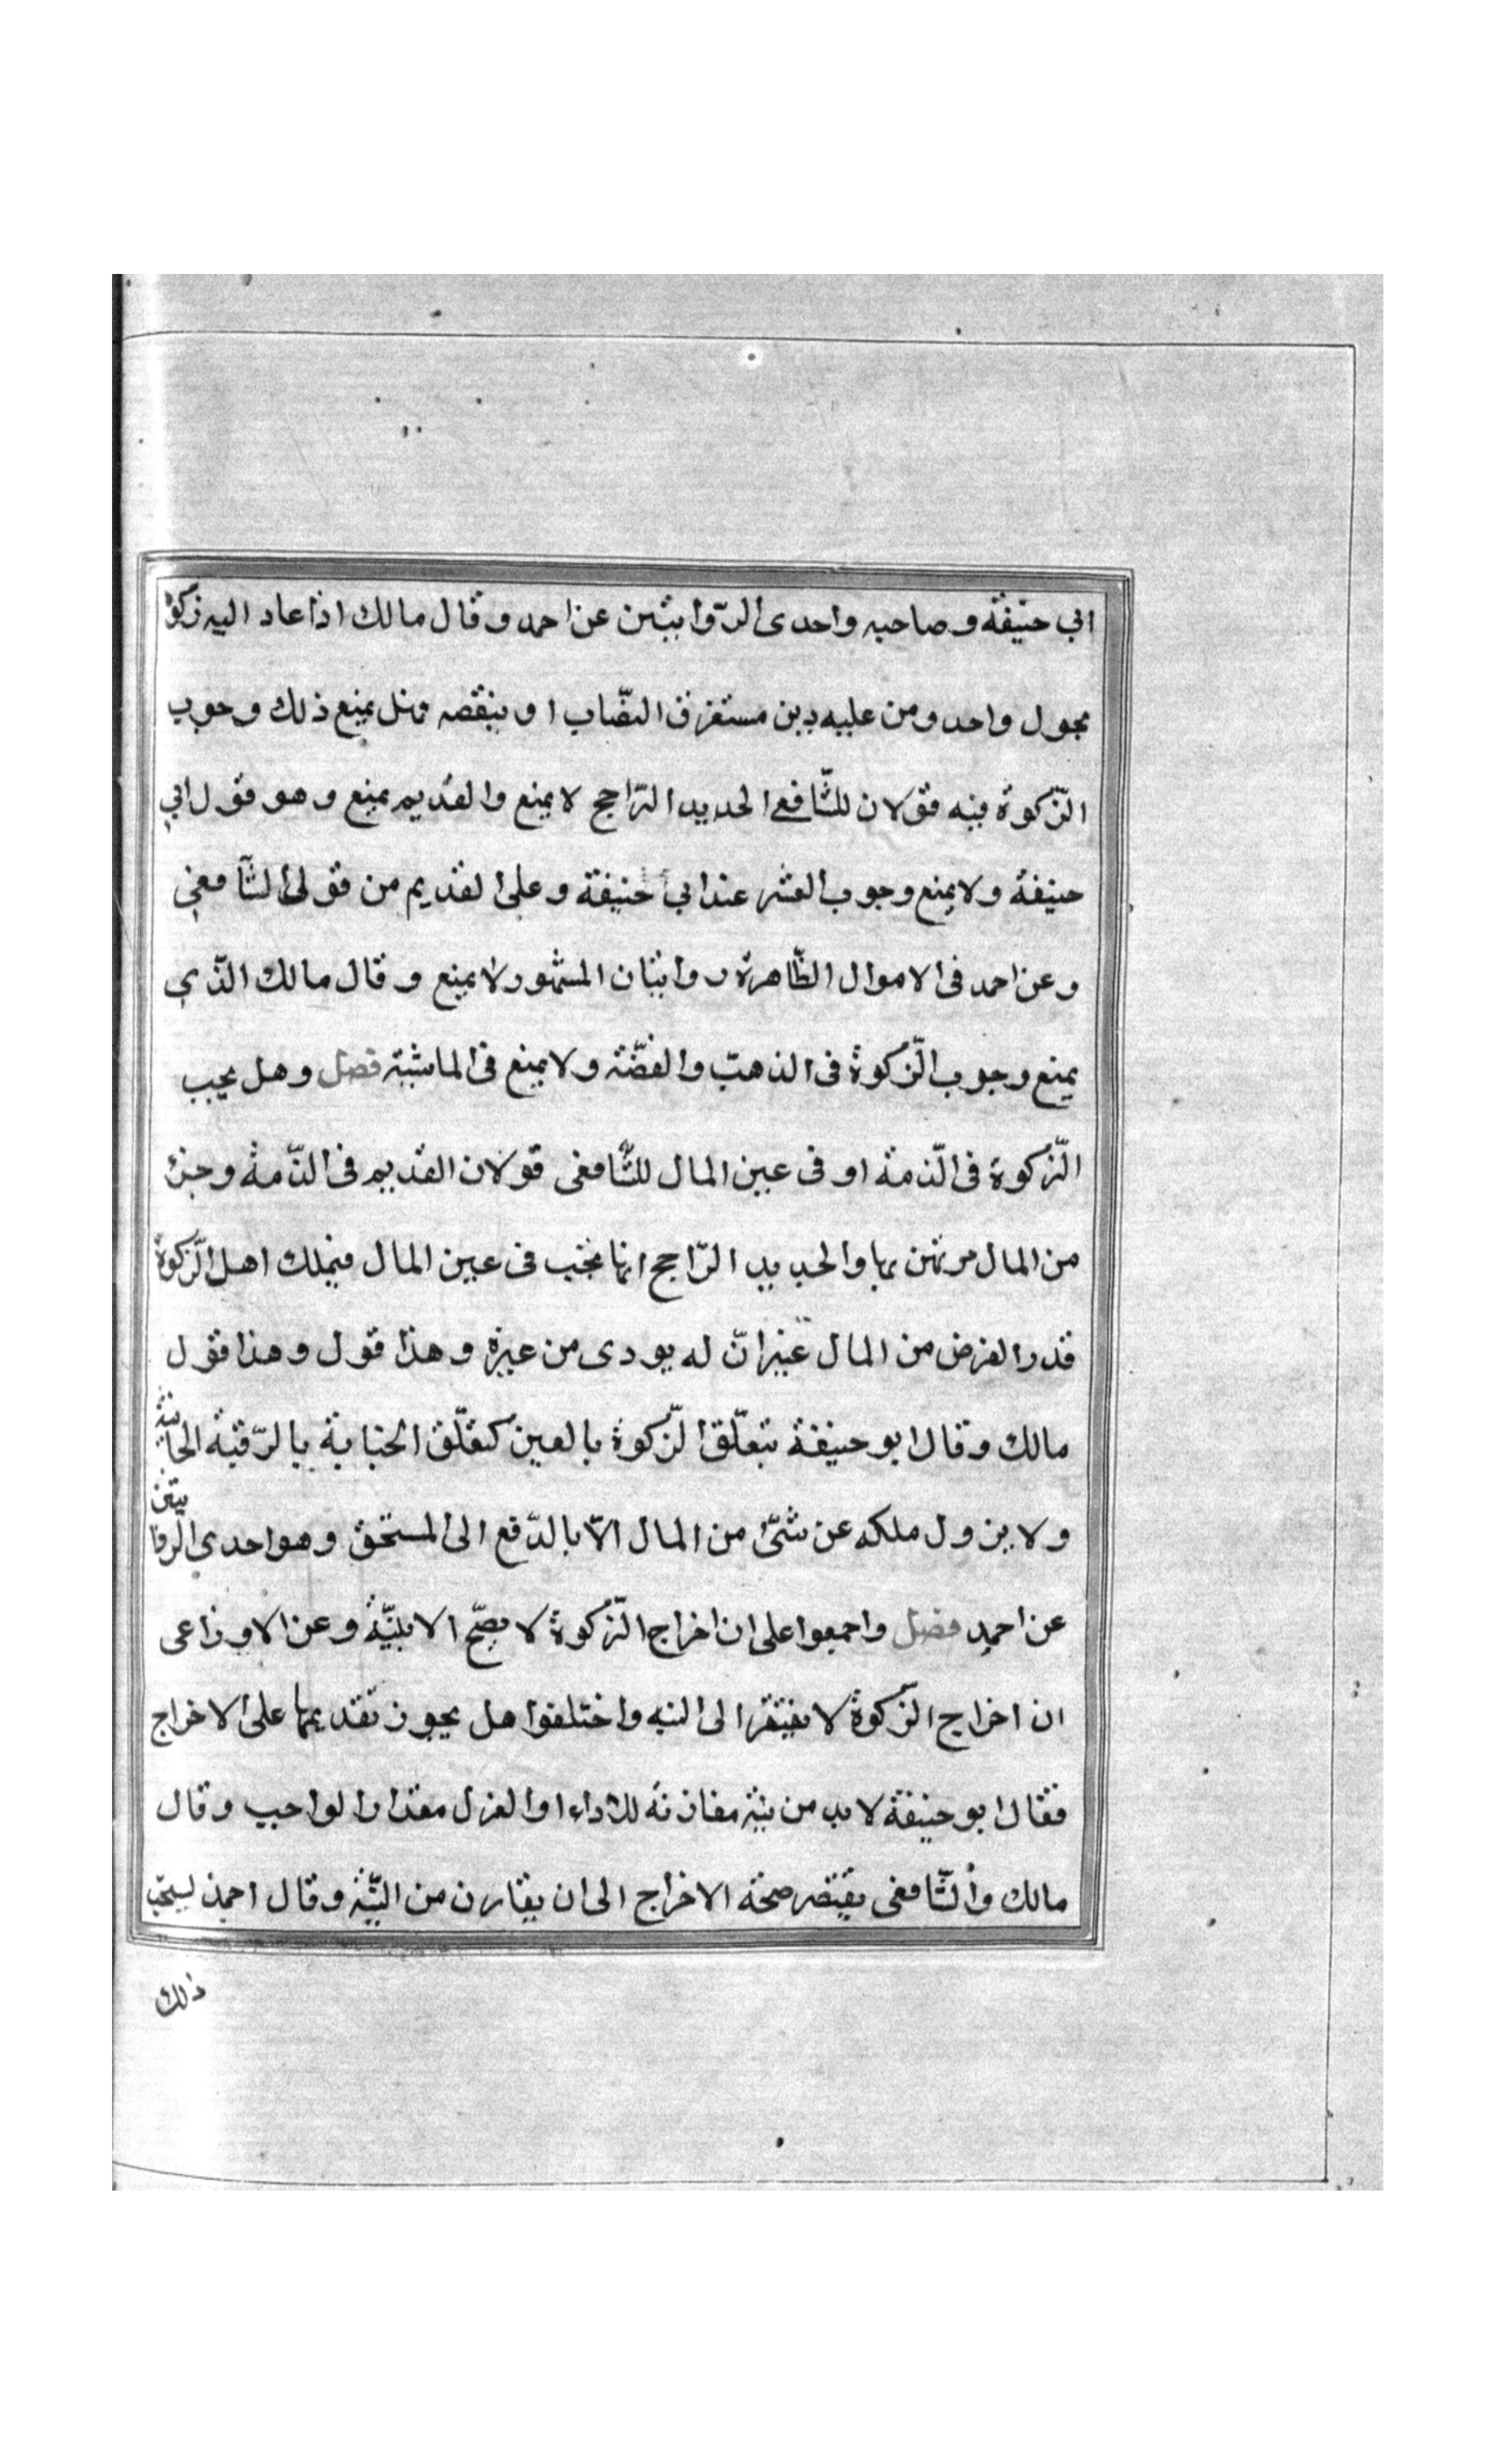 ابي حنيفة وصاحبيه واحدى الرّوايتين عن احمد وقال مالك اذا عاد اليه زكوة
بحول واحد ومن عليه دين مستغرق النصّاب او ينقصه فهل يمنع ذلك وجوب
الزّكوة فيه قولان للشّافعي الجديد الرّاجح لا يمنع والقديم يمنع وهو قول ابي
حنيفة ولا يمنع وجوب العشر عند ابي حنيفة وعلى القديم من قولي الشّافعي
وعن احمد فى الاموال الظّاهرة روايتان المشهور لا يمنع وقال مالك الدّين
يمنع وجوب الزّكوة فى الذهب والفضّة ولا يمنع فى الماشية فصل وهل يجب
الزّكوة فى الذّمة او فى عين المال للشّافعى قولان القديم فى الذّمة وجزء
من المال مرتهن بها والجديد الرّاجح انها تجب فى عين المال فيملك اهل الزّكوة
قدر الفرض من المال غير انّ له يودى من غيره وهذا قول وهذا قول
مالك وقال ابو حنيفة تتعلّق الزّكوة بالعين كتعلّق الجناية بالرّقبة الجانية
ولا يزول ملكه عن شئ من المال الاّ بالدّفع الى المستحق وهو احدى الرّوايتين
عن احمد فصل واجمعوا على ان اخراج الزّكوة لا يصحّ الا بنيّة وعن الاوزاعى
ان اخراج الزّكوة لا يفتقر الى النيه واختلفوا هل يجوز تقديمها على الاخراج
فقال ابو حنيفة لا بد من نية مقارنة للاداء او العزل مقدار الواجب وقال
مالك والشّافعى يفتقر صحة الاخراج الى ان يقارن من النيّة وقال احمد يستحب
ذلك